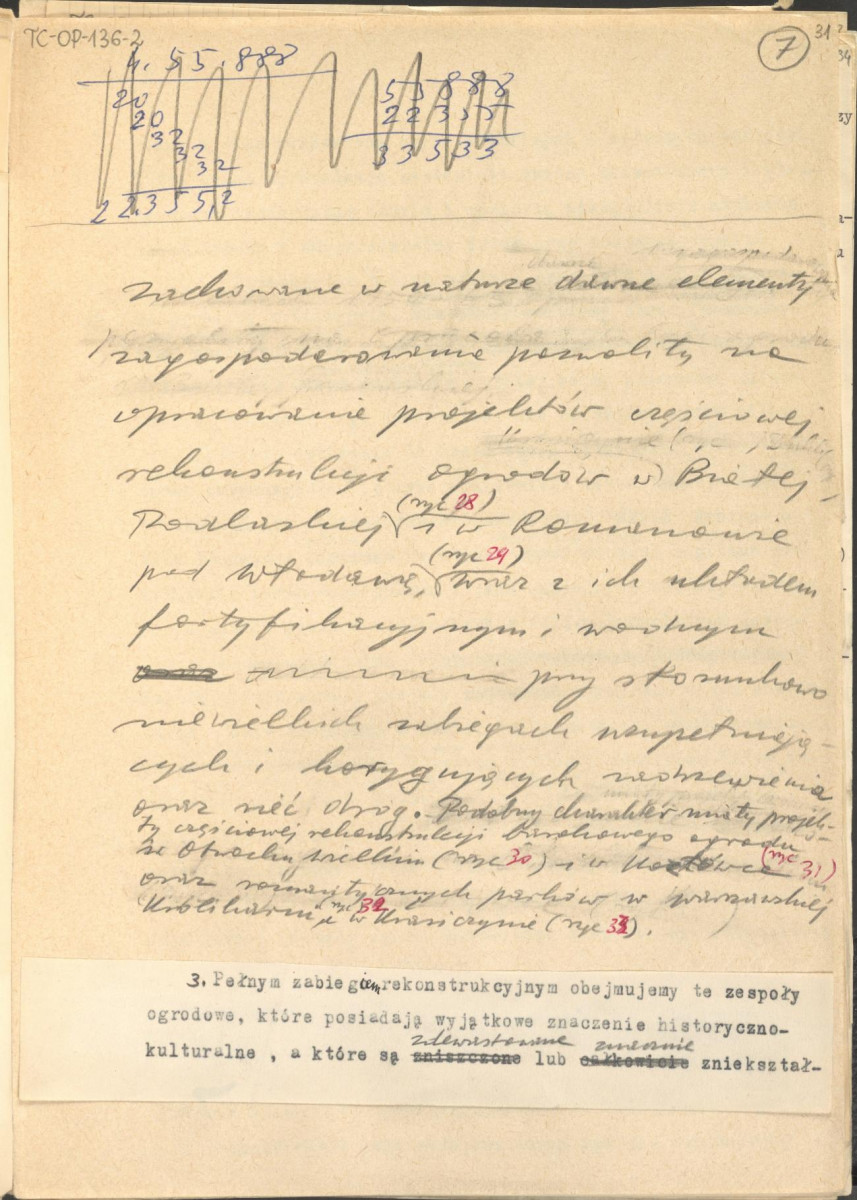 TC-OP-136-2
7
31
4.55.888
20
20
32
32
32
22.355,2
55888
33533
zachowane w naturze dawne elementy
zagospodarowania pozwoliły na
opracowanie projektów częściowej
rekonstrukcji ogrodów w Białej
Podlaskiej (ryc 28) i w Romanowie
pod Włodawą, (ryc 29) wraz z ich układem
fortyfikacyjnym i wodnym
oraz przy stosunkowo
niewielkich zabiegach uzupełniają-
cych i korygujących zadrzewienia
oraz sieć dróg. Podobny charakter miały projek-
ty częściowej rekonstrukcji barokowego ogrodu
w Otwocku Wielkim (ryc 30) i w Kozłówce (ryc 31)
oraz romantycznych parków w warszawskiej
Królikarni (ryc 32) i w Krasiczynie (ryc 33).
3. Pełnym zabiegiem rekonstrukcyjnym obejmujemy te zespoły
ogrodowe, które posiadają wyjątkowe znaczenie historyczno-
zdewastowane znacznie
kulturalne , a które są zniszczone lub całkowicie zniekształ-